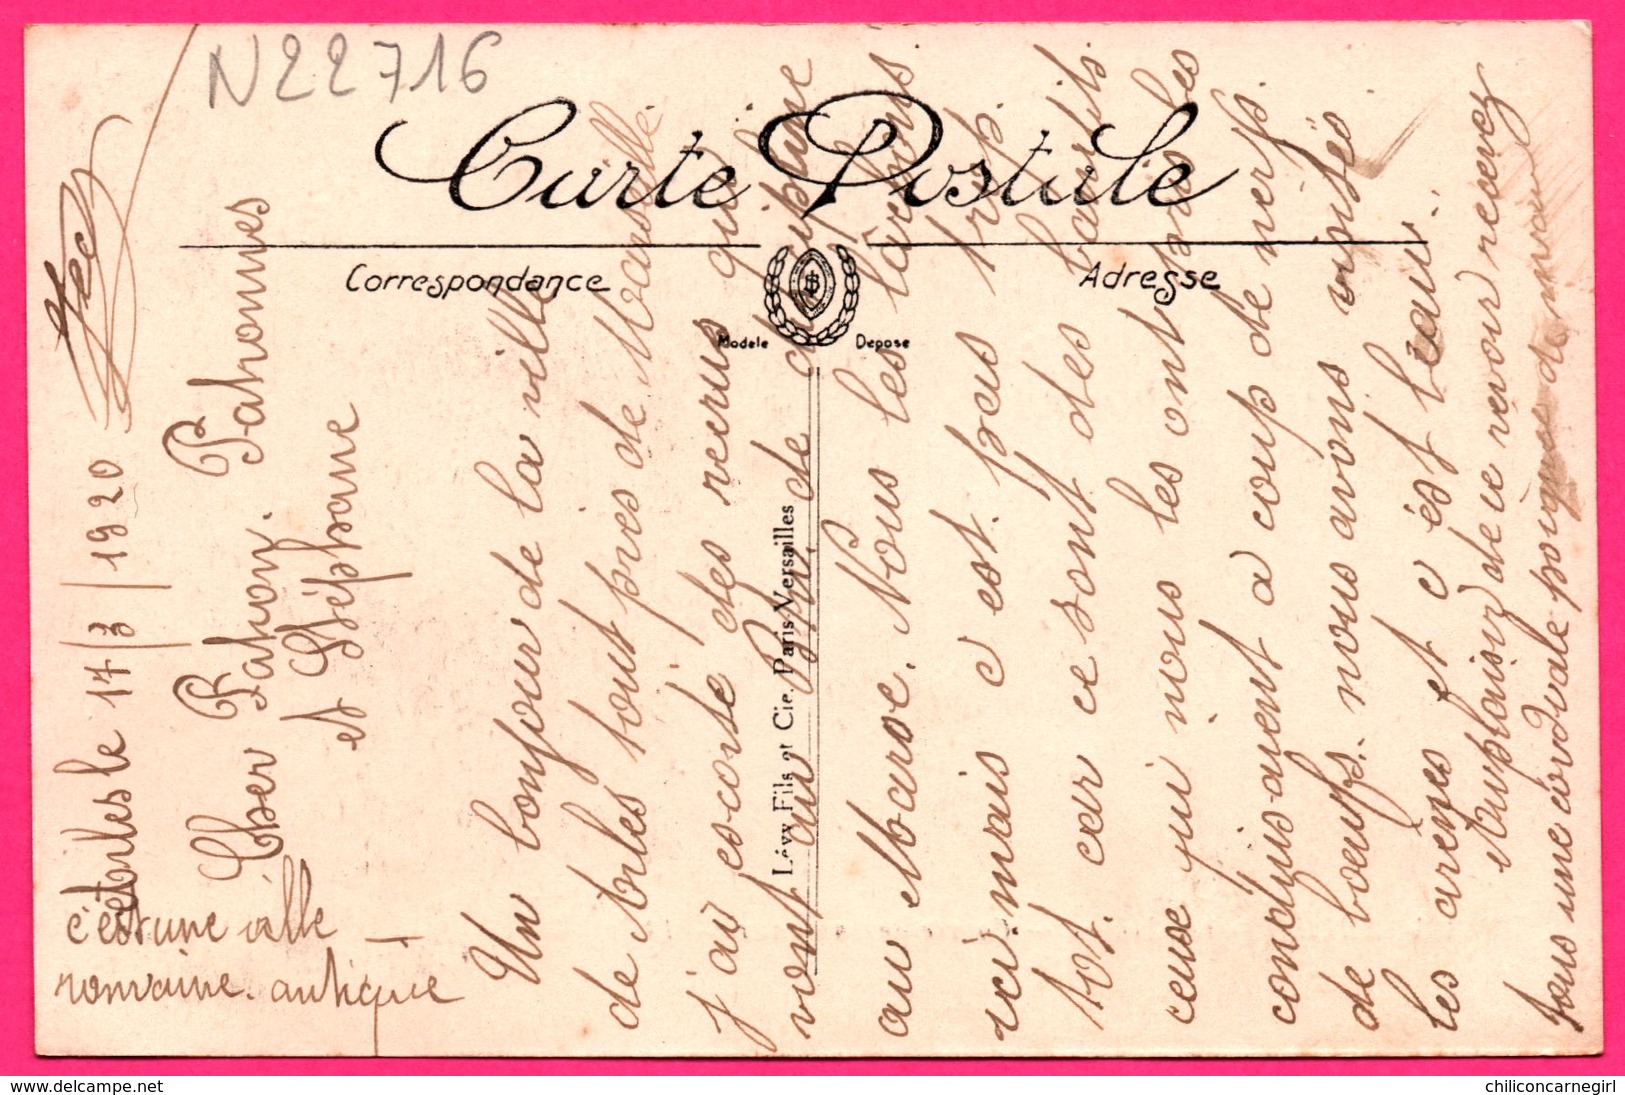 N22716
Carte Postale
Correspondance
Adresse
Modèle Déposé
Lévy Fils et Cie. Paris-Versailles
Arles le 17/3/1920
Cher Pahon. Pahonnes
et Stéphane
Un bonjour de la ville
de Arles tout près de Marseille
j'ai escorté des recrus qui
vont au de discipline
au Maroc. Nous les lâchons
ici. mais c est. pas trop.
tot. car ce sont des bandits.
ceux qui nous les ont pris les
conduisaient a coup de nerfs.
de bœufs. nous avons visités
les arènes et c ést beau.
Au plaisir de ce revoir recevez
tous une cordiale poignée de main
c'est une ville
romaine. antique
www.delcampe.net
chiliconcarnegirl